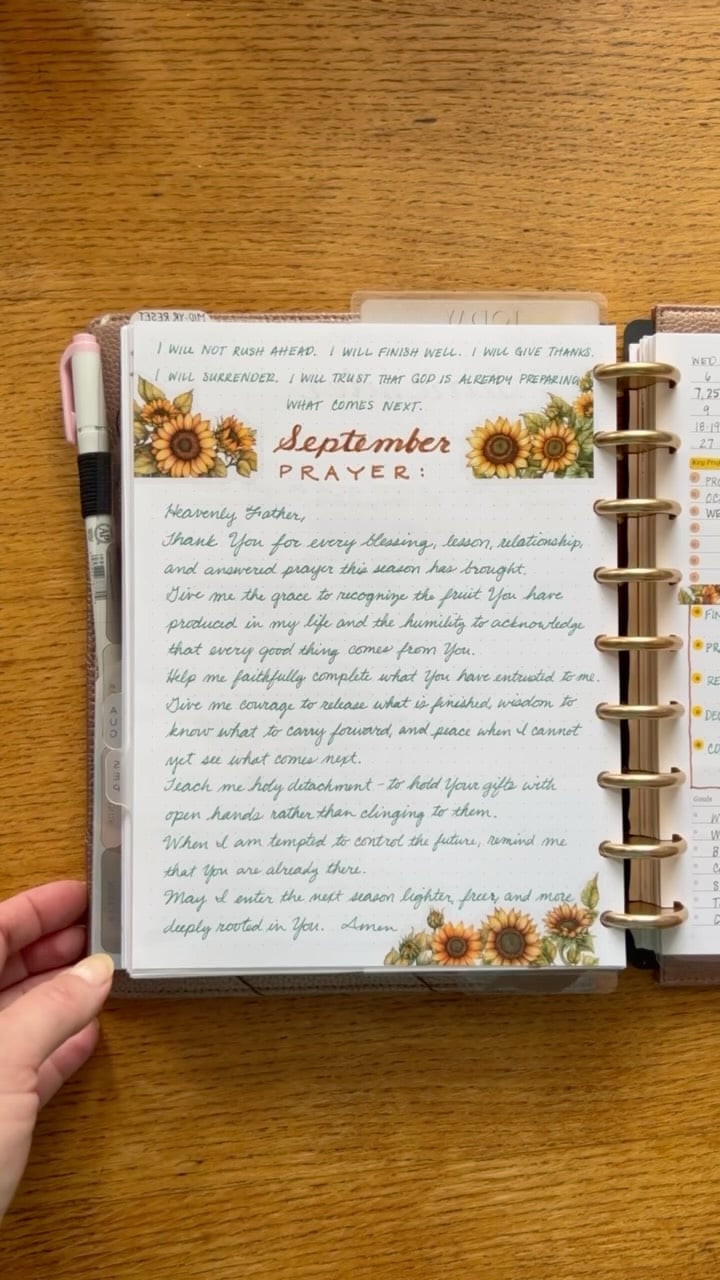 I WILL NOT RUSH AHEAD. I WILL FINISH WELL. I WILL GIVE THANKS.
I WILL SURRENDER. I WILL TRUST THAT GOD IS ALREADY PREPARING
WHAT COMES NEXT.
September
PRAYER:
Heavenly Father,
Thank You for every blessing, lesson, relationship,
and answered prayer this season has brought.
Give me the grace to recognize the fruit You have
produced in my life and the humility to acknowledge
that every good thing comes from You.
Help me faithfully complete what You have entrusted to me.
Give me courage to release what is finished, wisdom to
know what to carry forward, and peace when I cannot
yet see what comes next.
Teach me holy detachment - to hold Your gifts with
open hands rather than clinging to them.
When I am tempted to control the future, remind me
that You are already there.
May I enter the next season lighter, freer, and more
deeply rooted in You. Amen
MID-YR RESET
TODAY
AUG
SEP
WED
6
7, 25
9
18-19
27
Goals